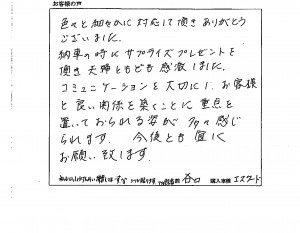 お客様の声
色々と細やかに対応して頂きありがとう
ございました。
納車の時にサプライズプレゼントを
頂き夫婦ともども感激しました。
コミュニケーションを大切にし、お客様
と良い関係を築くことに重点を
置いておられる姿が多々感じ
られます。今後とも宜しく
お願い致します。
谷口 購入車種 エスクード